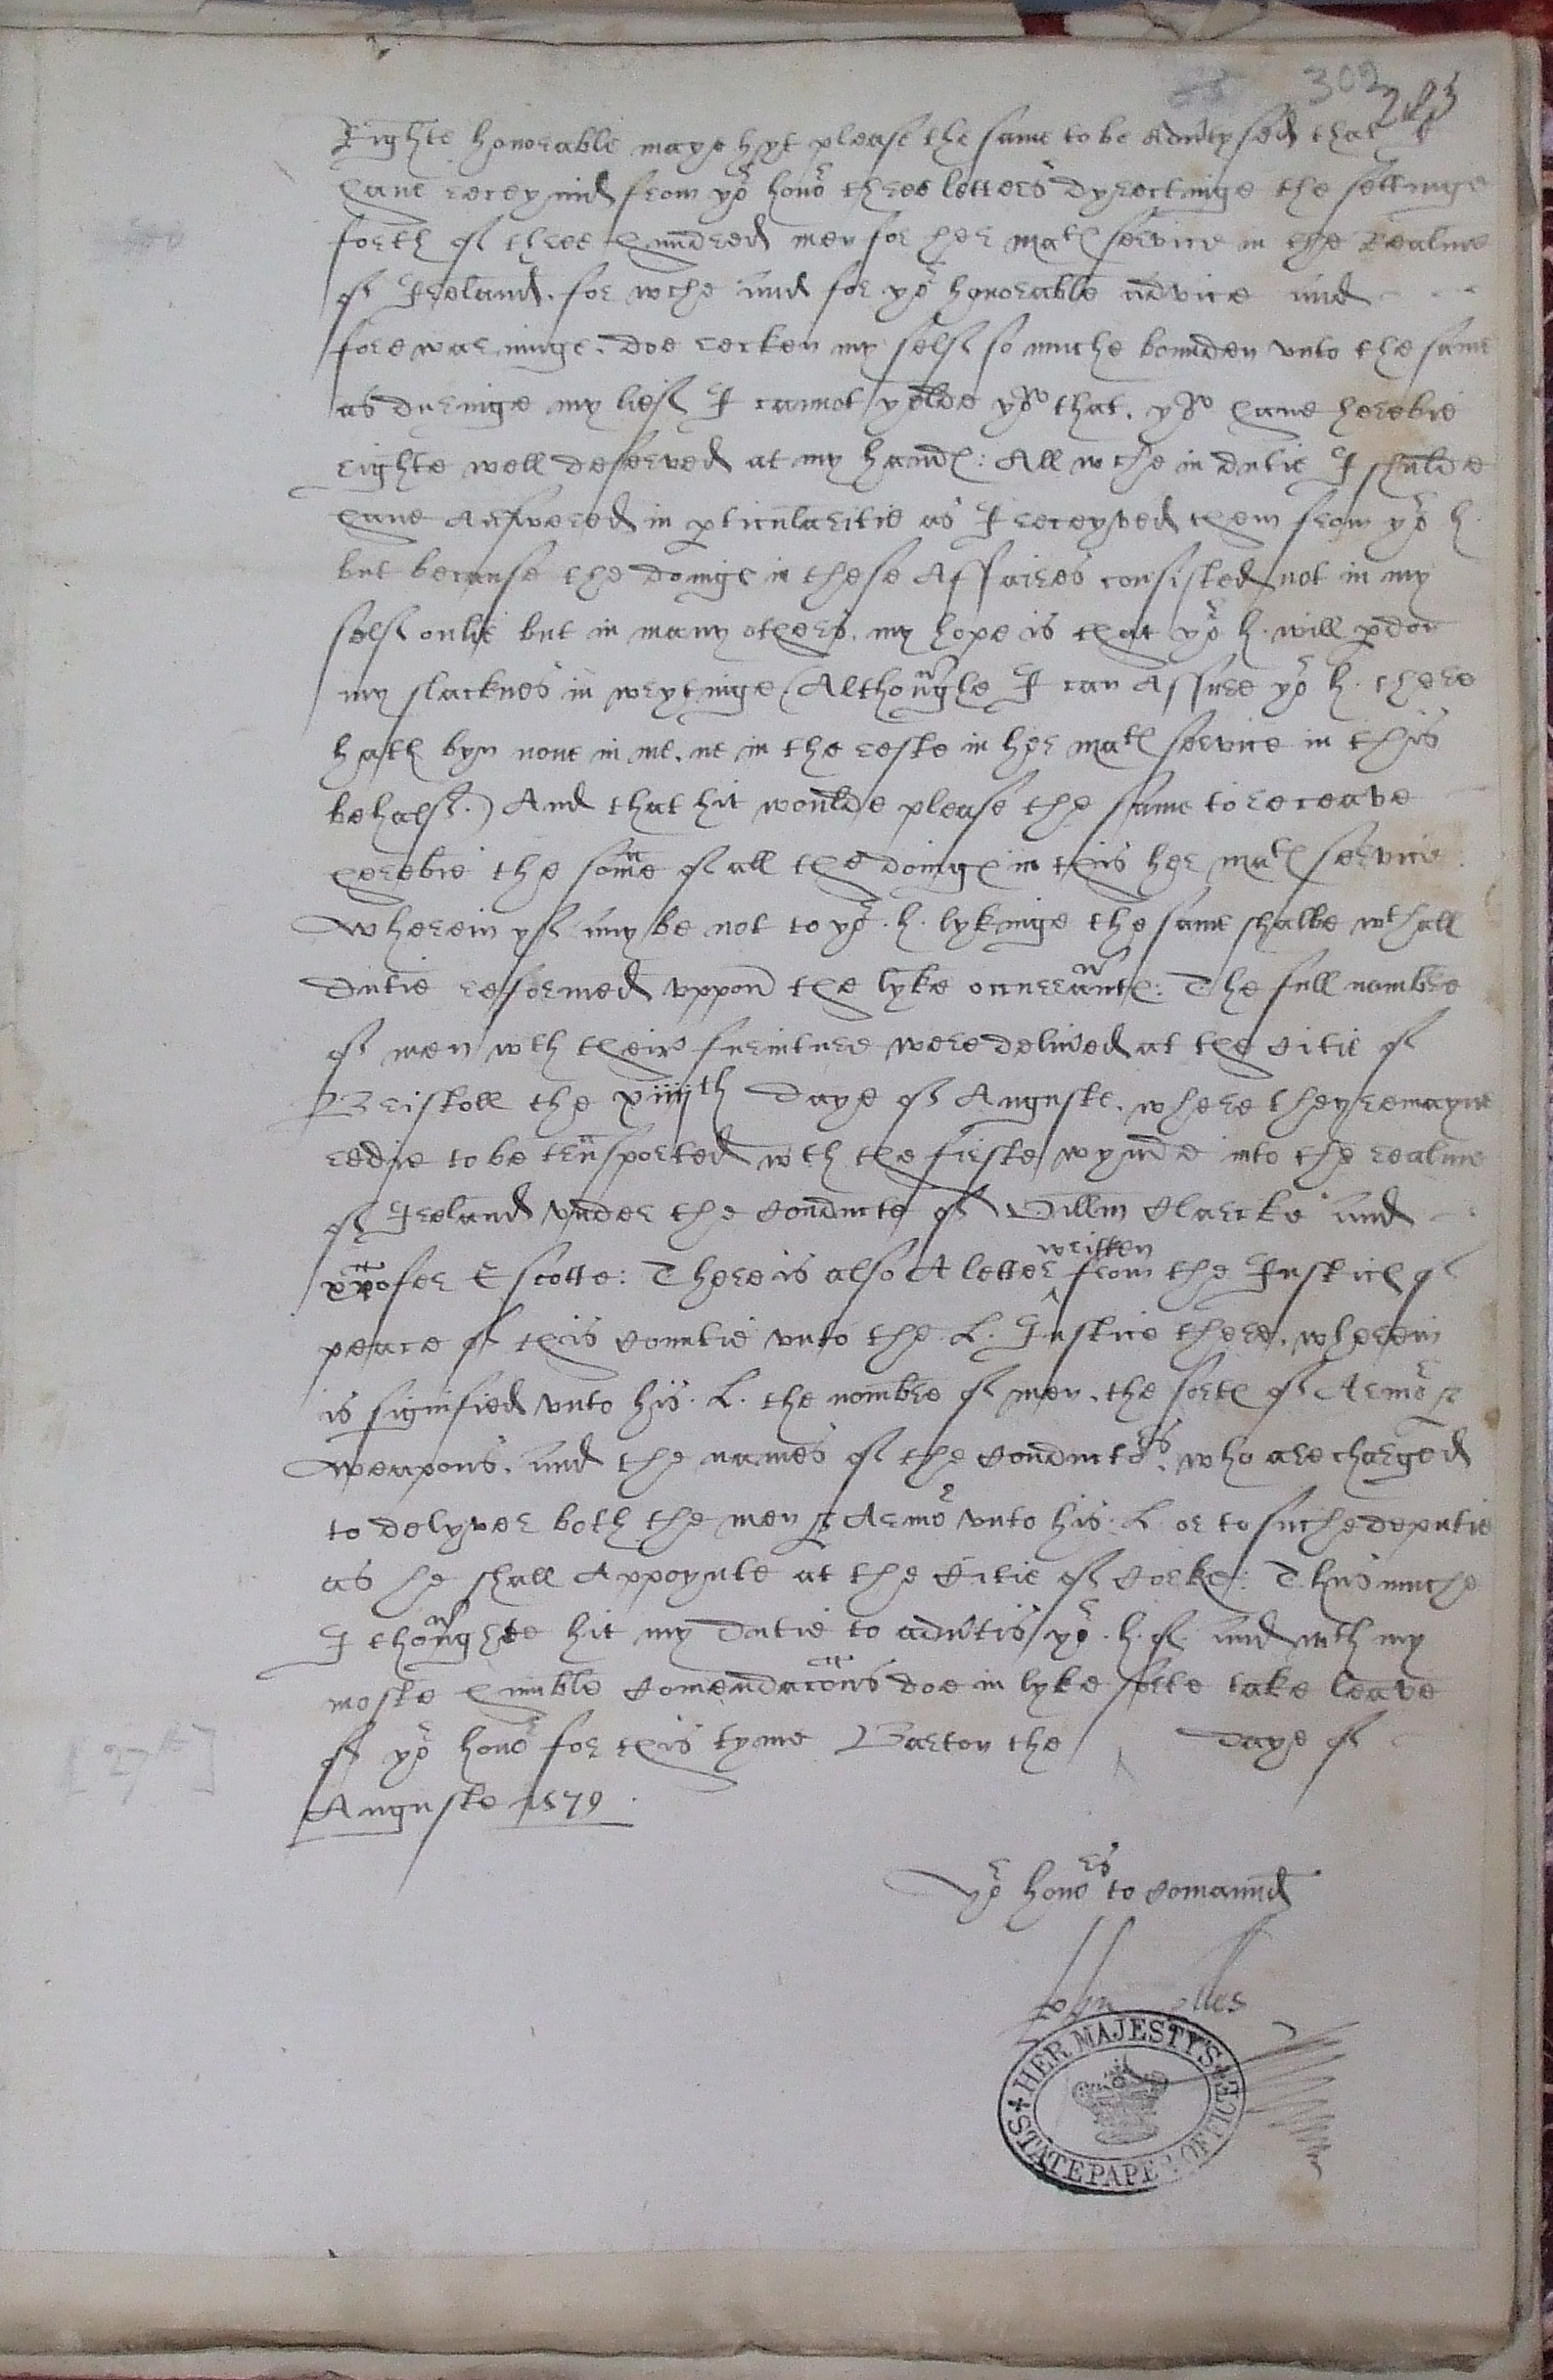 302
Righte honorable maye hyt please the same to be advtysed that I
have receyuid from yor honor three letters dyrectinge the settinge
forth of three hundred men for her matẻ service in the Realme
of Ireland. for wche and for yor honorable advice and
forewarninge. doe recken my self so muche bounden vnto the same
as duringe my lief I cannot yelde yow that. yow have herebie
righte well deserved at my handes: All wche in dutie I shulde
have Answered in pticularitie as I receyved them from yor h.
but because the doinge in these Affaires consisted not in my
self onlie but in many others. my hope is that yor h. will pdon
my slacknes in wrytinge (Althoughe I can Assure yor h. there
hath byn none in me. ne in the reste in her mates service in this
behalf.) And that hit woulde please the same to receave
herebie the some of all the doinges in this her mates service.
Wherein yf any be not to yor. h. lykinge the same shalbe wth all
dutie reformed vppon the lyke occurantes: The full nombre
of men wth their furniture were delived at the Citie of
Bristoll the xiiijth daye of Auguste. where they remayne
redie to be trnsported wth the firste wynde into the realme
of Ireland vnder the Conducte of Willm Clarcke and
xpofer Escotte: There is also A letter written from the Justices of
peace of this Countie vnto the L. Justice there. wherein
is signified vnto his. L. the nombre of men. the sortes of Armor &
weapons. and the names of the Conductors. who are charged
to delyver both the men & Armor vnto his. L. or to suche deputie
as he shall Appoynte at the Citie of Corke: Thus muche
I thoughte hit my dutie to advtis yor. h. of. and wth my
moste humble Comendacons doe in lyke sorte take leave
of yor honor for this tyme Barton the daye of
Auguste 1579.
[27th]
Yor honors to Comaund
HER MAJESTY'S STATE PAPER OFFICE